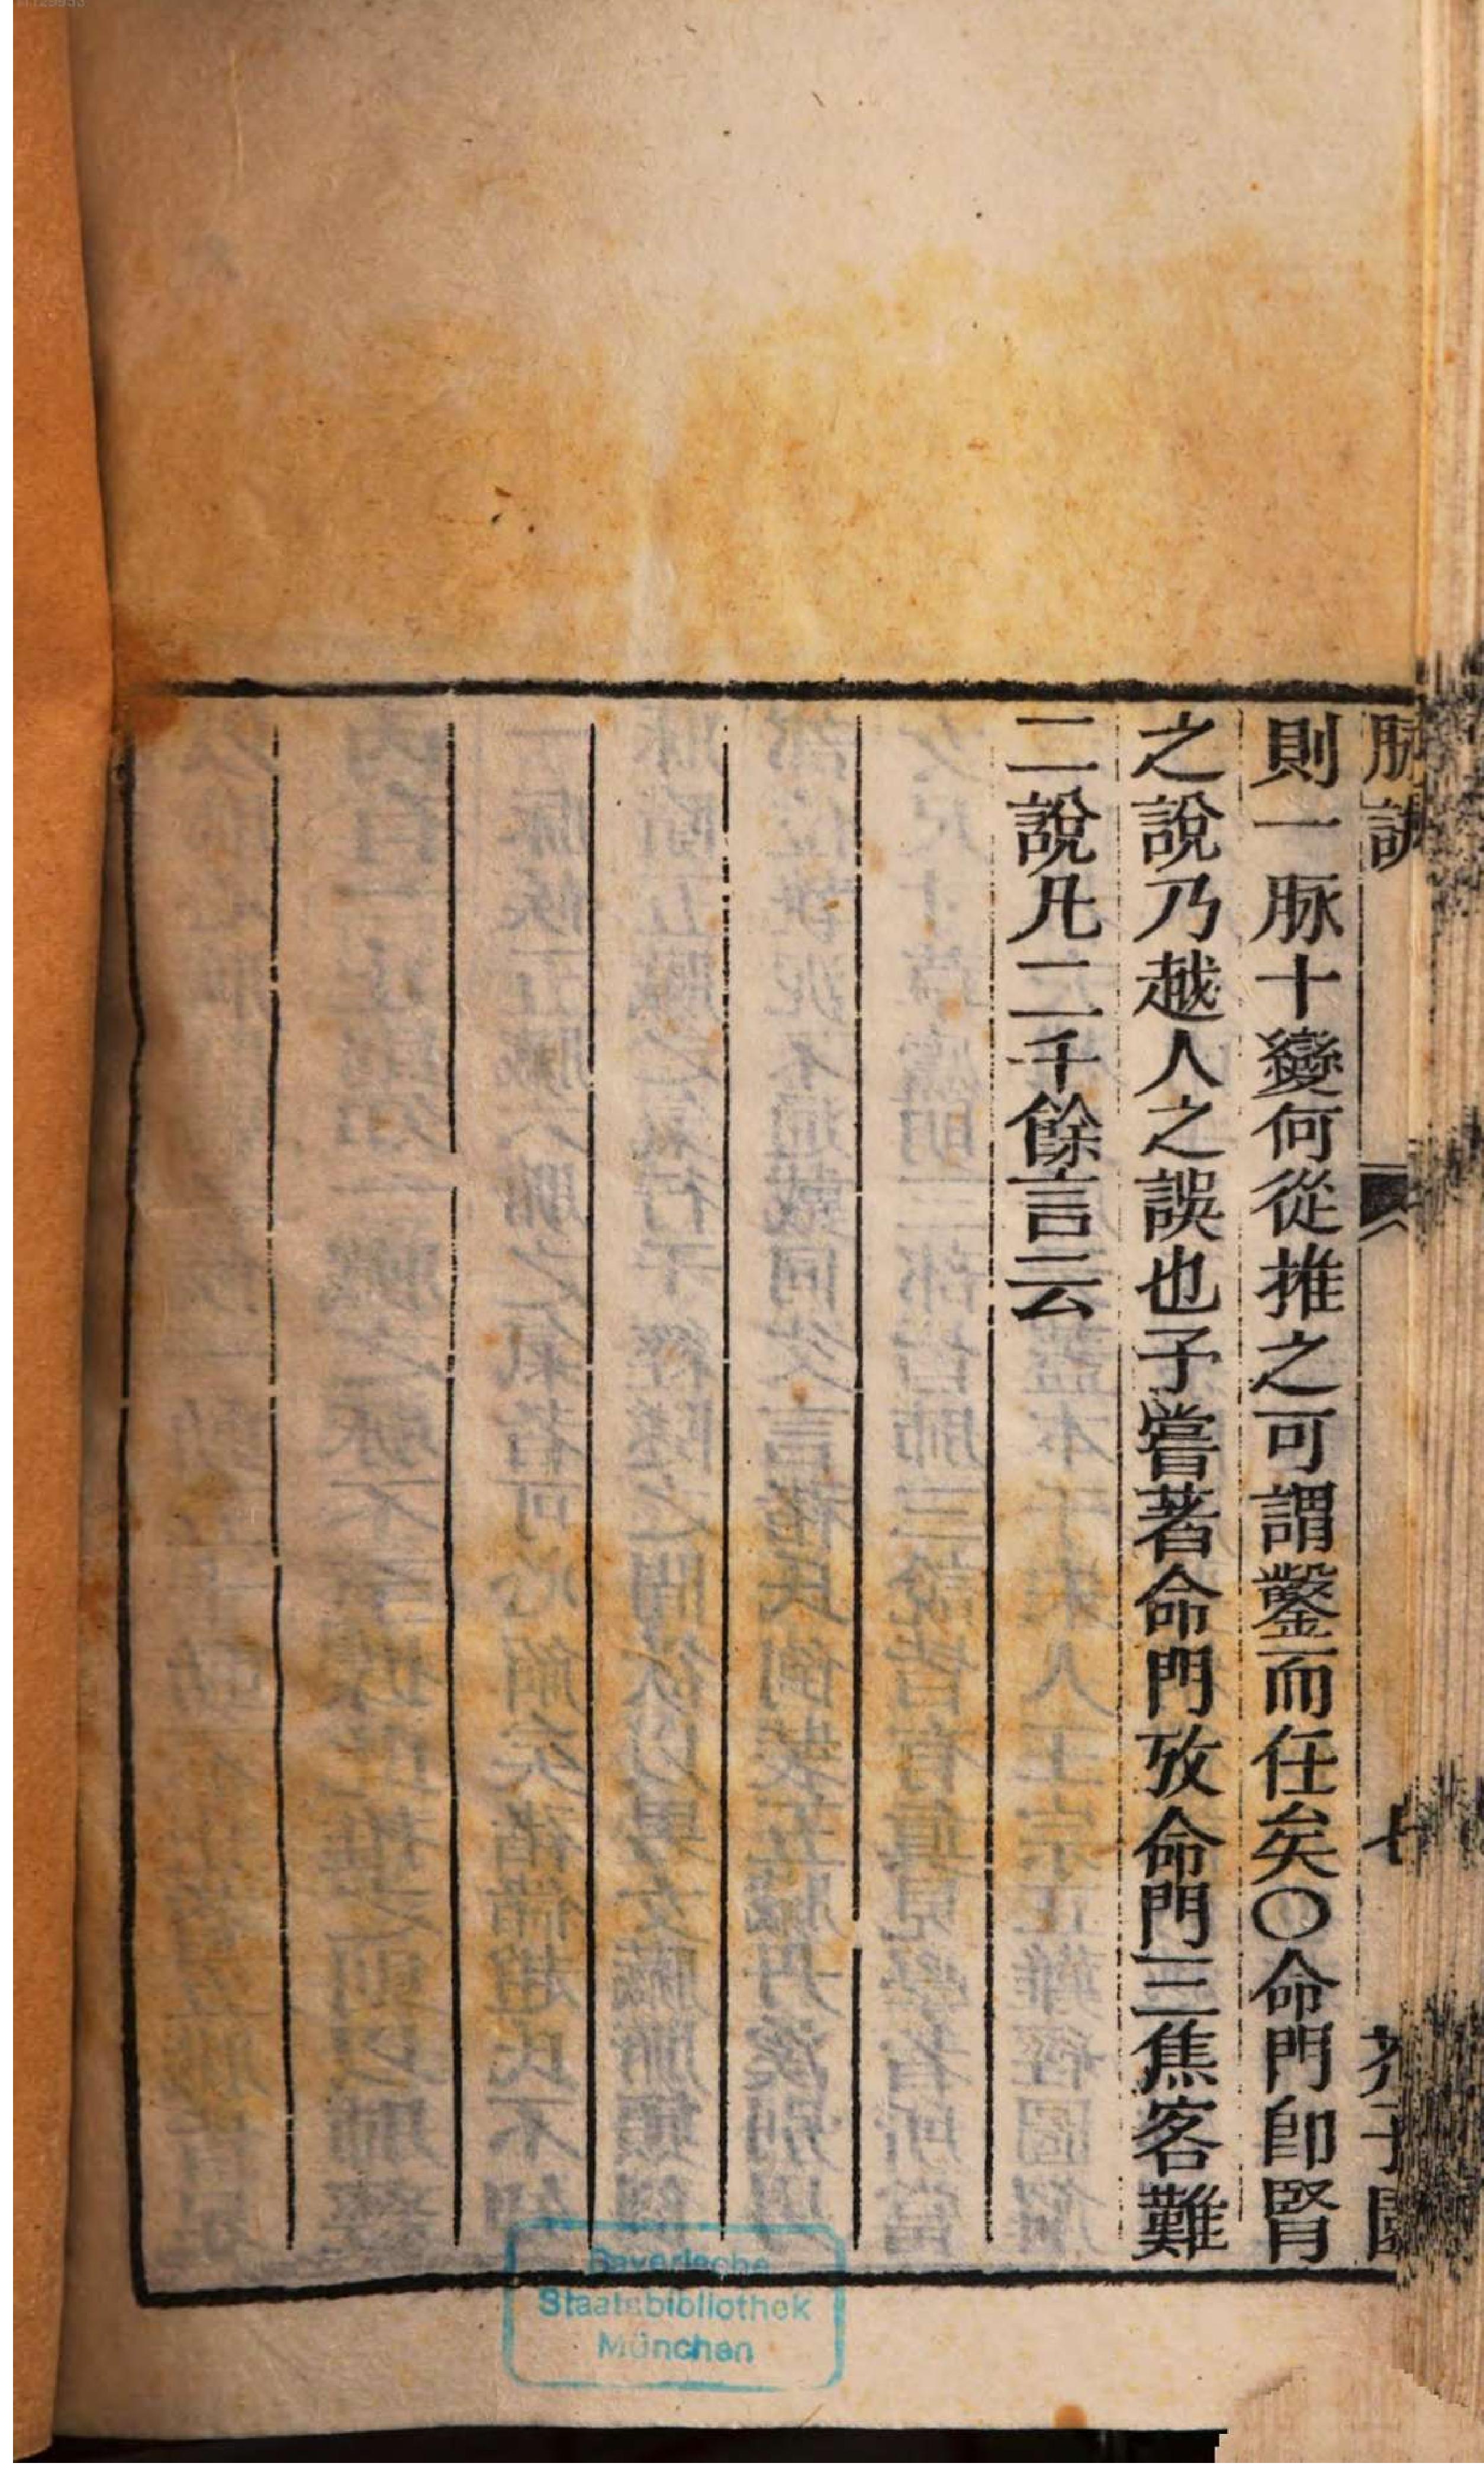 脉訣
七
芥子園
則一脉十變何從推之可謂鑿而任矣〇命門卽腎
之說乃越人之誤也子嘗著命門攷命門三焦客難
二說凡二千餘言云
Bayerische
Staatsbibliothek
München